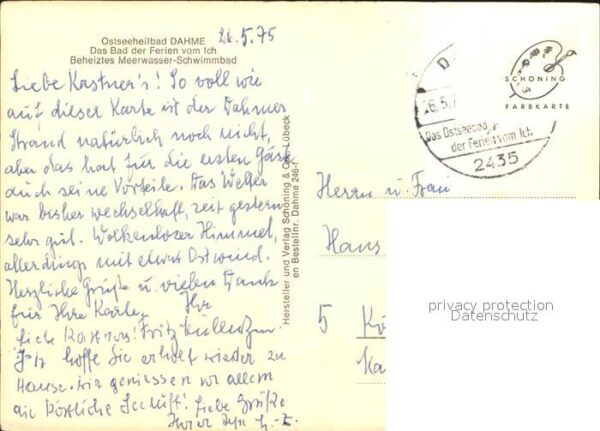 26.5.75
Ostseeheilbad DAHME
Das Bad der Ferien vom Ich
Beheiztes Meerwasser-Schwimmbad
Liebe Kastner's! So voll wie
auf dieser Karte ist der Dahmer
Strand natürlich noch nicht,
aber das hat für die ersten Gäste
auch seine Vorteile. Das Wetter
war bisher wechselhaft, seit gestern
sehr gut. Wolkenloser Himmel,
allerdings mit etwas Ostwind.
Herzliche Grüße u. vielen Dank
für Ihre Karte. Ihr
Fritz
Liebe Kastners!
hoffe Sie erholt wieder zu
Hause. Wir geniessen vor allem
die köstliche Seeluft! Liebe Grüße
Ihrer
Hersteller und Verlag Schöning & Co., Lübeck
en Bestellnr. Dahme 246-f
D
26.5.7
Das Ostseebad
der Ferien vom Ich
2435
SCHÖNING
FARBKARTE
Herrn u. Frau
Hans
5 Kö
Ka
privacy protection
Datenschutz